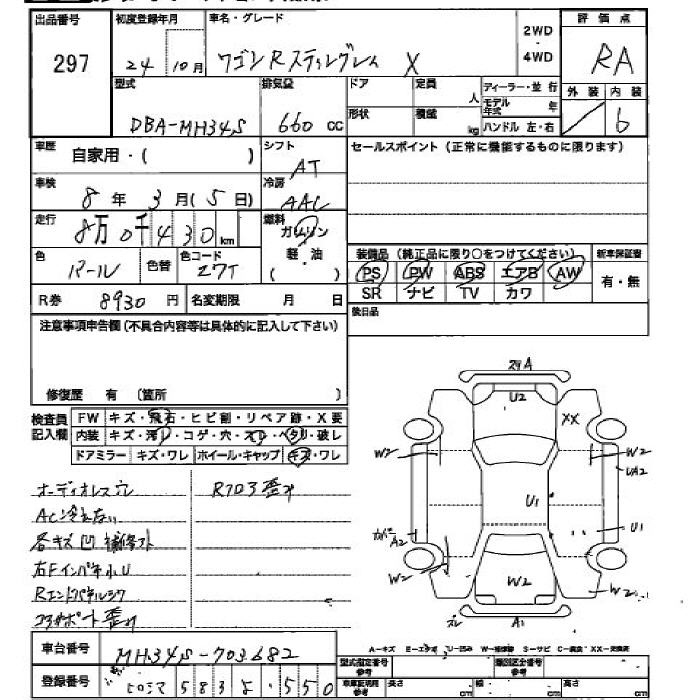 出品番号 初度登録年月 車名・グレード 2WD・4WD 評価点
297 24 10月 ワゴンRスティングレイ X RA
型式 排気量 ドア 定員 人 ディーラー・並行 外装 内装
DBA-MH34S 660cc 形状 積載 kg モデル年式 年 ハンドル 左・右 6
車歴 自家用・( ) シフト AT セールスポイント(正常に機能するものに限ります)
車検 8年3月(5日) 冷房 AAC
走行 8万0千430km 燃料 ガソリン 軽・油 ( )
色 パール 色替 色コード Z7T
装備品(純正品に限り○をつけてください) 新車保証書
PS PW ABS エアB AW 有・無
SR ナビ TV カワ
R券 8930円 名変期限 月 日 後日品
注意事項申告欄(不具合内容等は具体的に記入して下さい)
修復歴 有 (箇所 )
検査員記入欄 FW キズ・飛石・ヒビ割・リペア跡・X要
内装 キズ・汚レ・コゲ・穴・スレ・ヘタリ・破レ
ドアミラー キズ・ワレ ホイール・キャップ キズ・ワレ
オーディオレス穴 Rフロア歪み
AC冷えない
各キズ凹 補修アト
右Fインパネ小U
Rエンドパネル
コアサポート歪み
A
U2
XX
W2 W2
UA2
U1 U1
A2
W2 W2 W2
A1
A-キズ E-エクボ U-凹み W-補修跡 S-サビ C-腐食 XX-交換済
車台番号 MH34S-703682
型式指定番号 参考 類別区分番号 参考
登録番号 583 550
車庫証明用 参考 長さ cm 幅 cm 高さ cm